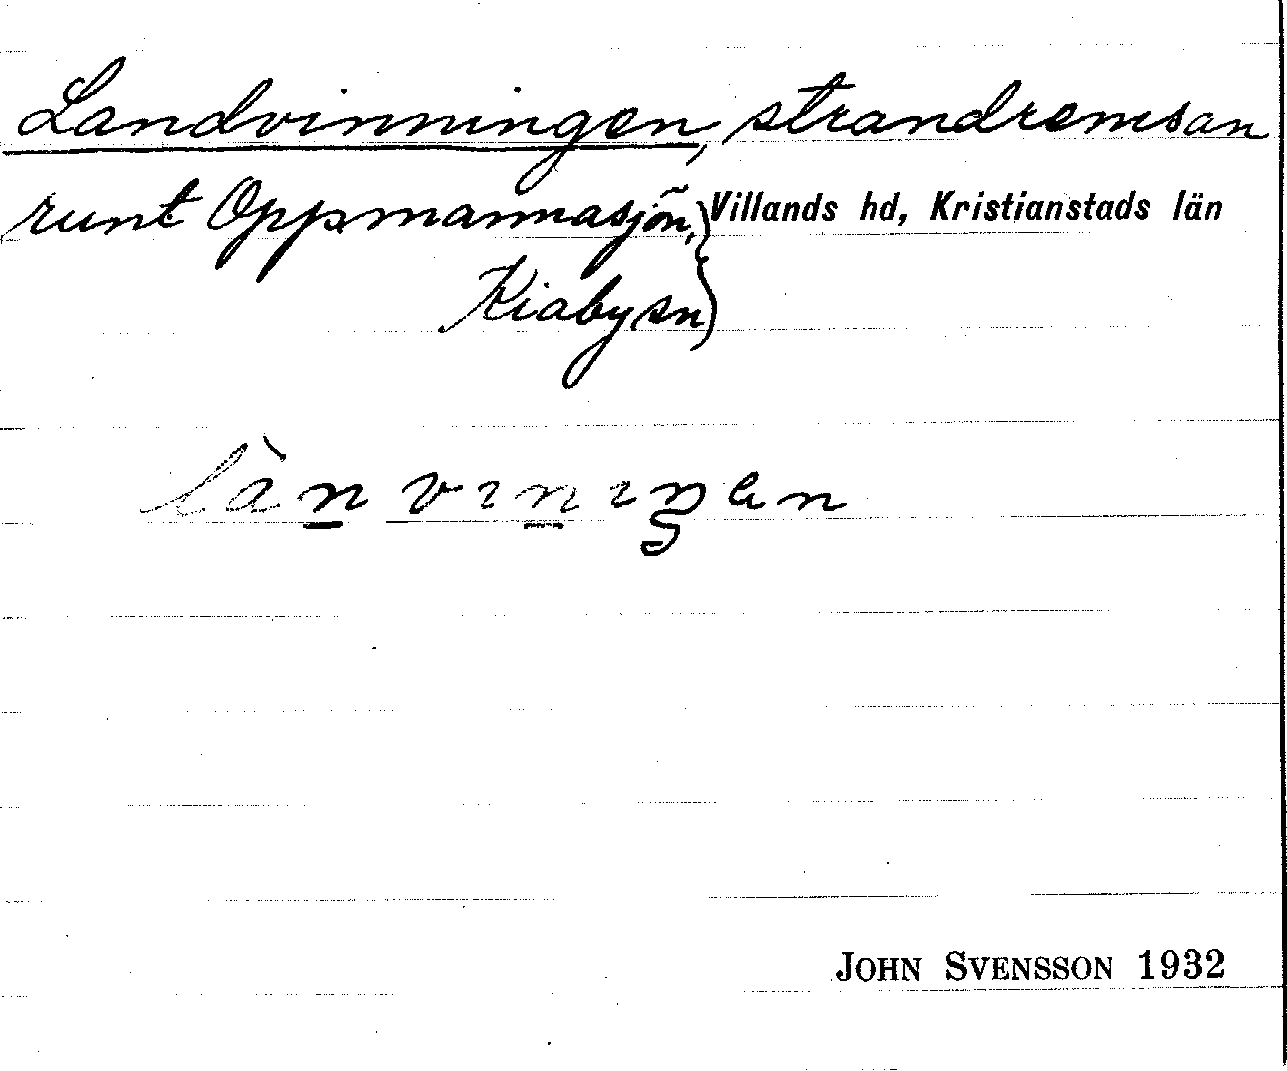 Landvinningen, strandremsan
runt Oppmannasjön, Villands hd, Kristianstads län
Kiaby sn
lànviniŋen
JOHN SVENSSON 1932